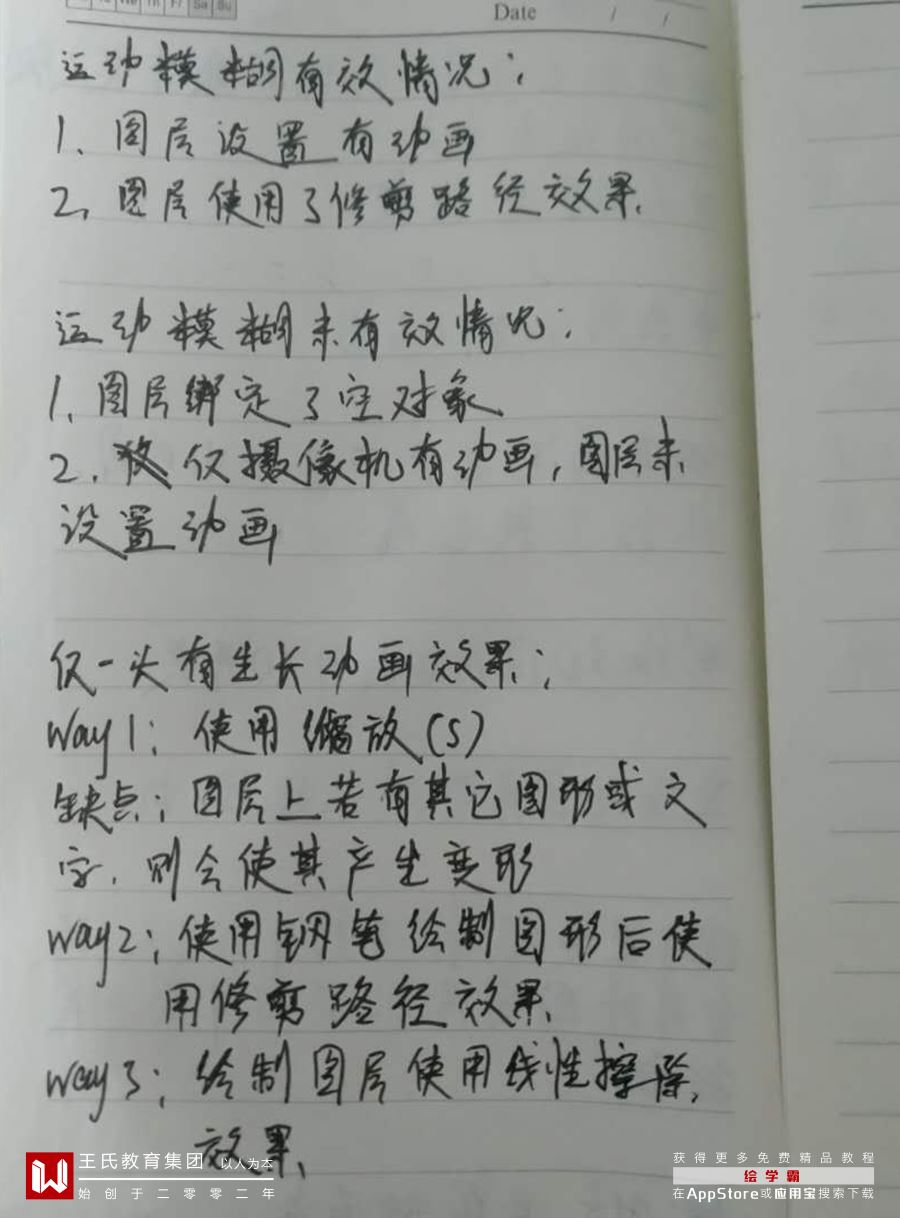 Th Fr Sa Su
Date / /
运动模糊有效情况：
1、图层设置有动画
2、图层使用了修剪路径效果
运动模糊未有效情况：
1、图层绑定了空对象
2、仅摄像机有动画，图层未
设置动画
仅一头有生长动画效果：
Way1：使用缩放(S)
缺点：图层上若有其它图形或文
字，则会使其产生变形
way2：使用钢笔绘制图形后使
用修剪路径效果
way3：绘制图层使用线性擦除
效果
王氏教育集团 以人为本
始创于二零零二年
获得更多免费精品教程
绘学霸
在AppStore或应用宝搜索下载